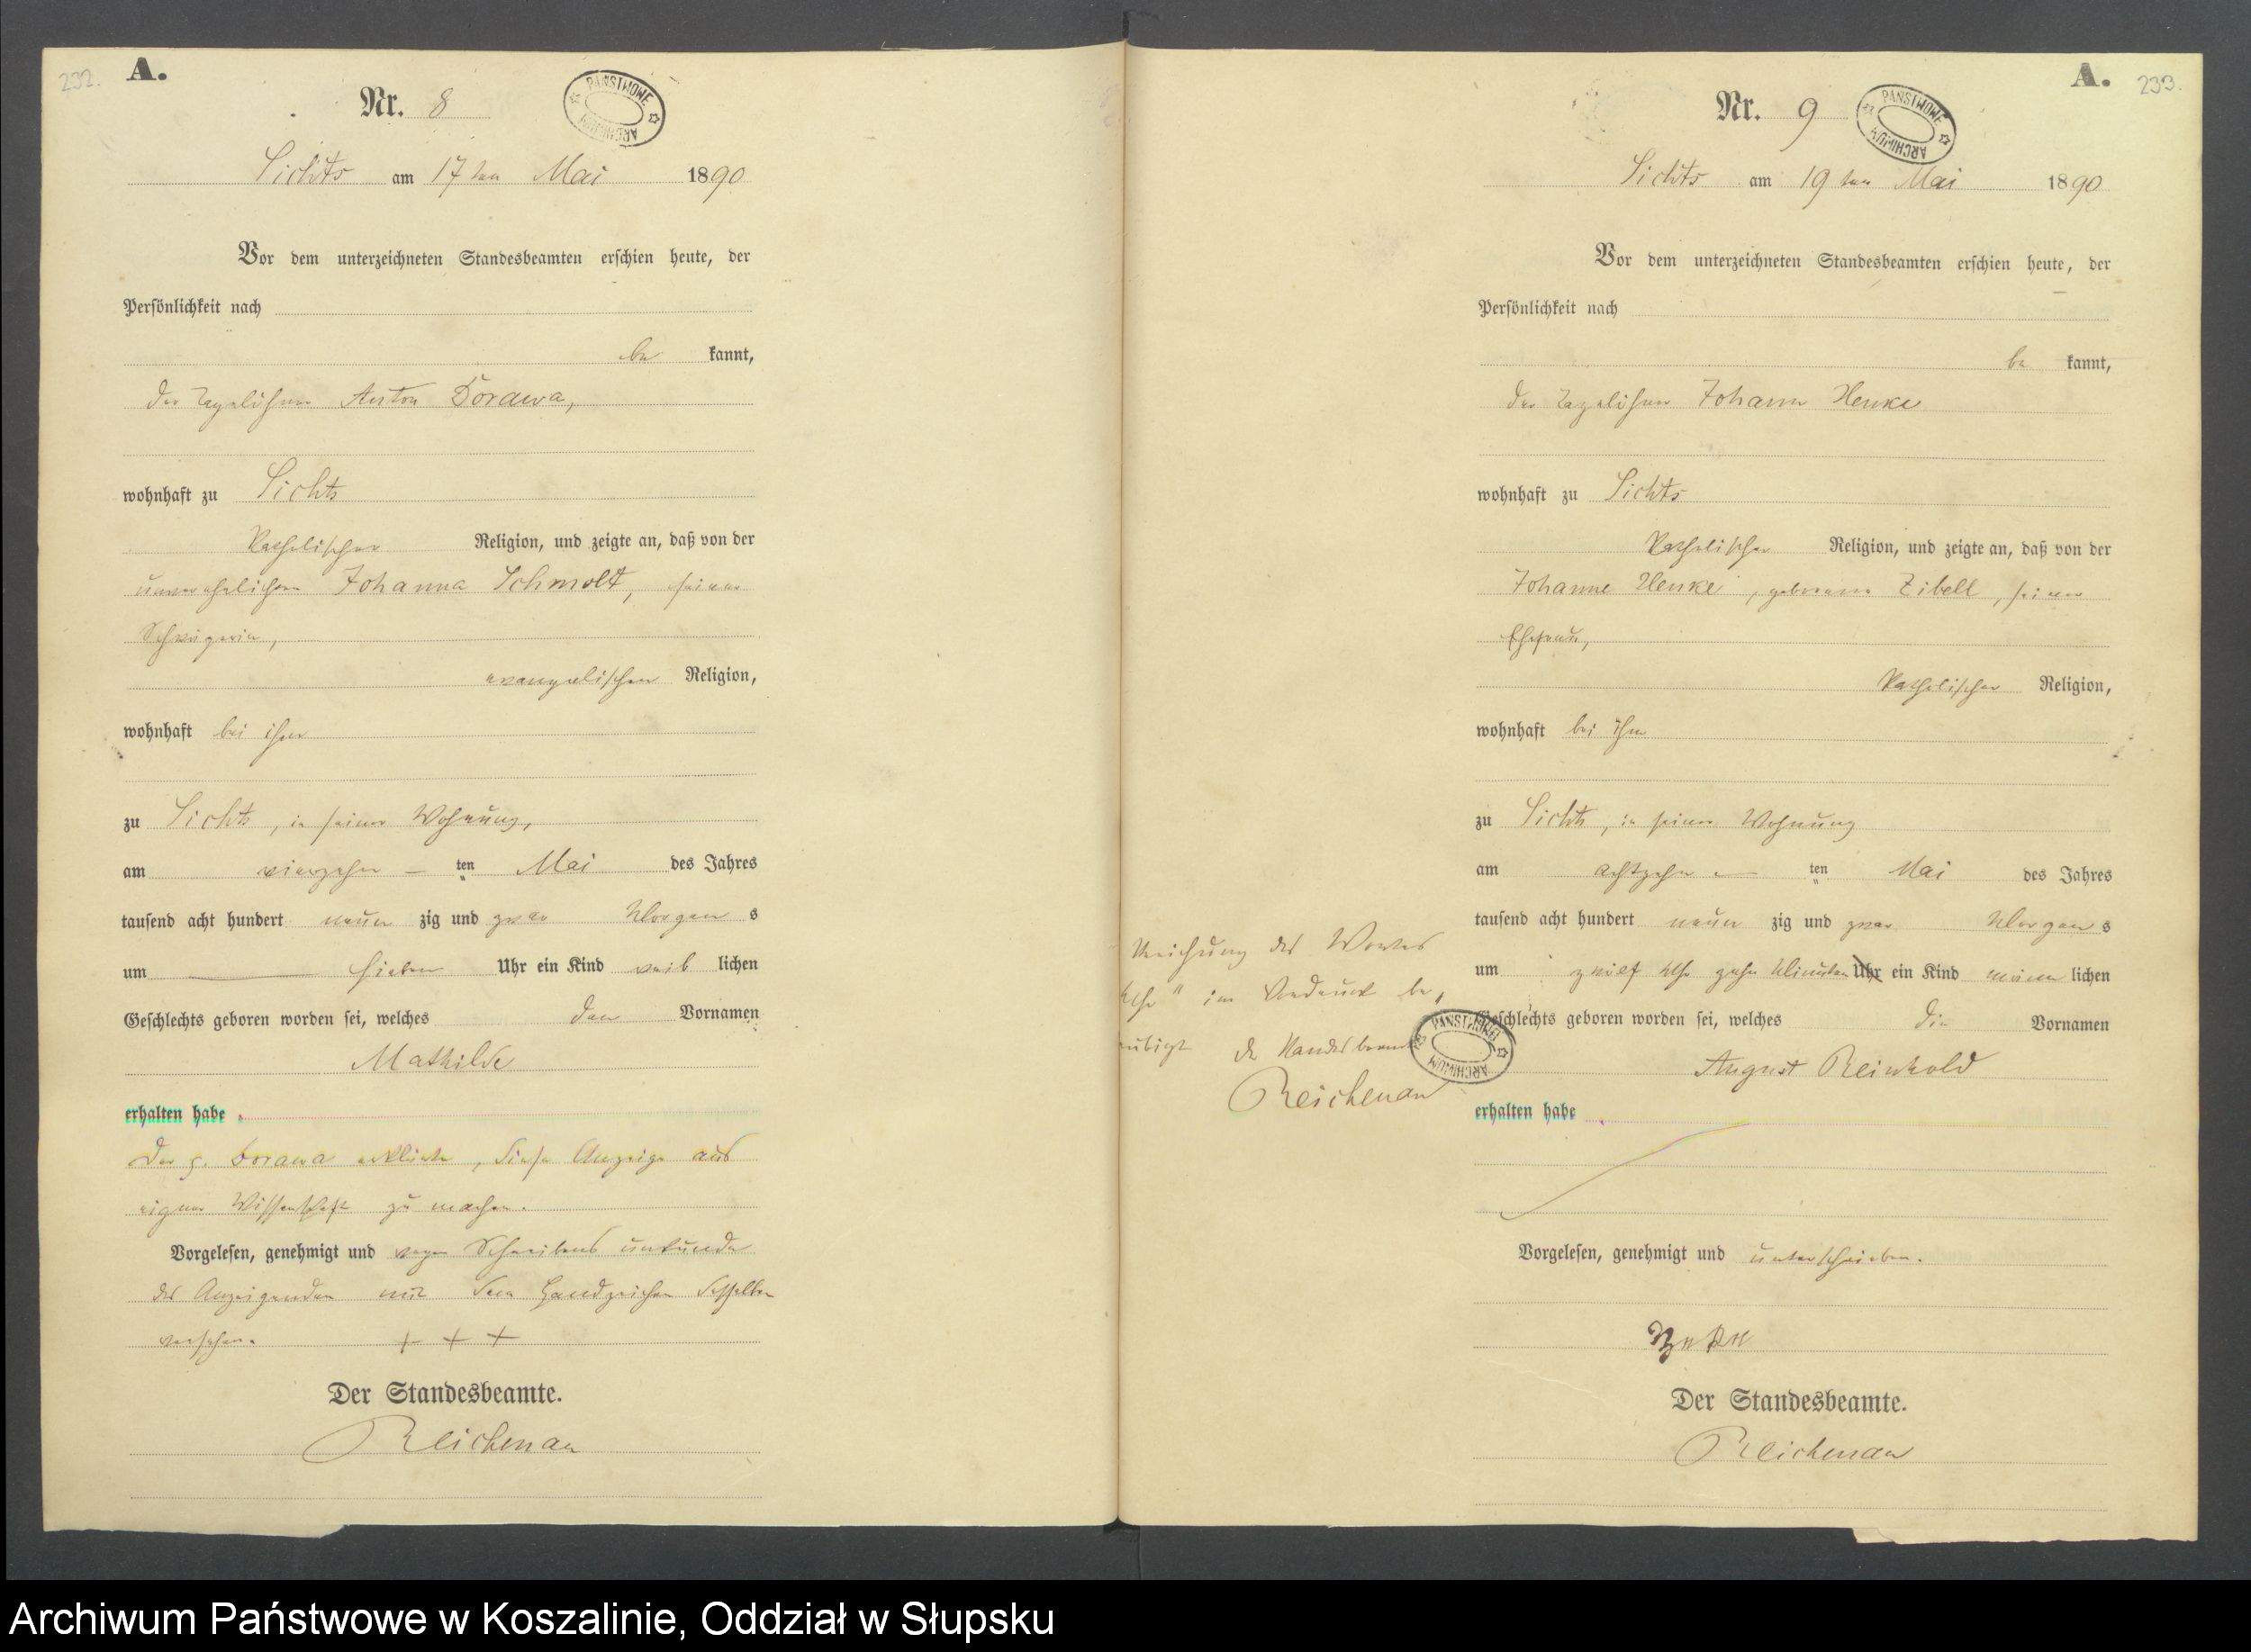 232.
A.
Nr. 8
PAŃSTWOWE ARCHIWUM
Sichts am 17ten Mai 1890
Vor dem unterzeichneten Standesbeamten erschien heute, der
Persönlichkeit nach
be kannt,
der Tagelöhner Anton Borawa,
wohnhaft zu Sichts
katholischer Religion, und zeigte an, daß von der
unverehelichten Johanna Schmolt, seiner
Schwägerin,
evangelischen Religion,
wohnhaft bei ihm
zu Sichts, in seiner Wohnung,
am vierzehn ten Mai des Jahres
tausend acht hundert neun zig und zwar Morgen s
um sieben Uhr ein Kind weib lichen
Geschlechts geboren worden sei, welches den Vornamen
Mathilde
erhalten habe.
Der p. Borawa erklärte, diese Anzeige aus
eigner Wissenschaft zu machen.
Vorgelesen, genehmigt und wegen Schreibens unkunde
des Anzeigenden mit dem Handzeichen desselben
versehen. + + +
Der Standesbeamte.
Reichenau
A.
233.
Nr. 9
PAŃSTWOWE ARCHIWUM
Sichts am 19ten Mai 1890
Vor dem unterzeichneten Standesbeamten erschien heute, der
Persönlichkeit nach
be kannt,
der Tagelöhner Johann Henke
wohnhaft zu Sichts
katholischer Religion, und zeigte an, daß von der
Johanne Henke, geborenen Zibell, seiner
Ehefrau,
katholischer Religion,
wohnhaft bei ihm
zu Sichts, in seiner Wohnung
am achtzehn ten Mai des Jahres
tausend acht hundert neun zig und zwar Morgen s
um zwölf Uhr zehn Minuten Uhr ein Kind männ lichen
Geschlechts geboren worden sei, welches die Vornamen
August Reinhold
erhalten habe
Vorgelesen, genehmigt und unterschrieben.
Der Standesbeamte.
Reichenau
des Wortes
Uhr" im Vordruck be
Der Standesbeamte
PAŃSTWOWE ARCHIWUM
Reichenau
Archiwum Państwowe w Koszalinie, Oddział w Słupsku